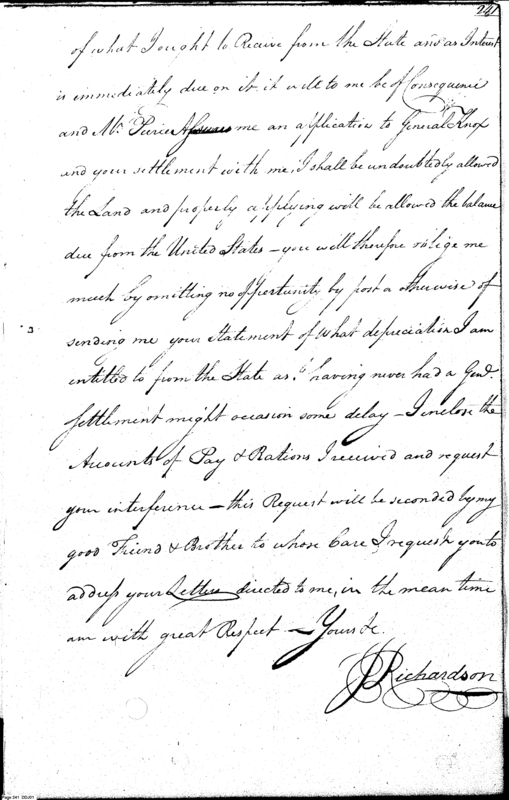 241
of what I ought to Receive from the State and as Interest
is immediately due on it, it will to me be of Consequence
and Mr. Pierce Assures me an application to General Knox
and your settlement with me, I shall be undoubtedly allowed
the Land and properly applying will be allowed the balance
due from the United States – you will therefore oblige me
much by omitting no oppertunity by post a otherwise of
sending me your statement of what depreciation I am
entitled to from the State as having never had a Genl.
settlement might occasion some delay – I inclose the
Accounts of Pay & Rations I received and request
your interference – this Request will be seconded by my
good Friend & Brother to whose Care I request you to
address your Letters directed to me, in the mean time
am with great Respect – Yours &c.
Richardson
Page 241